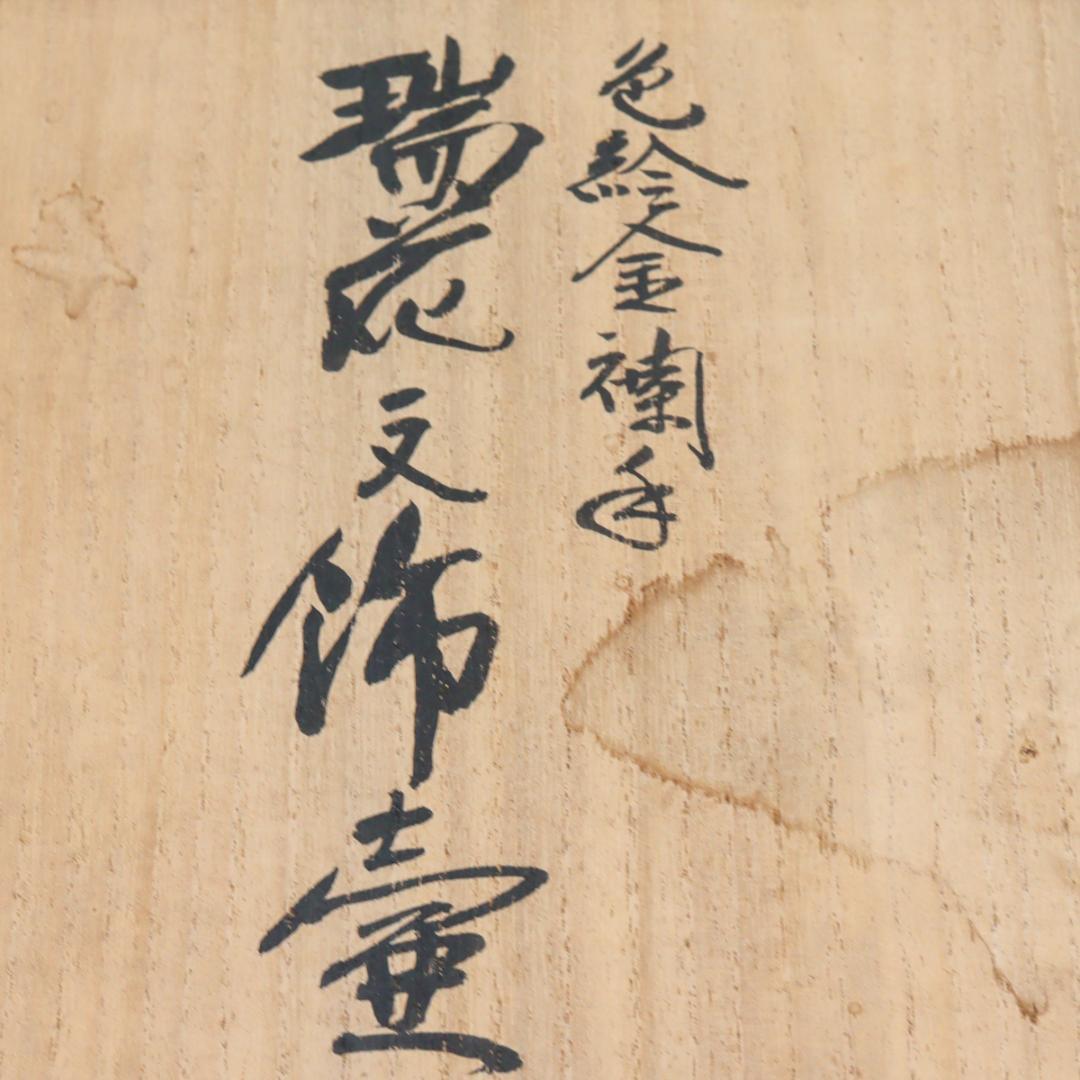 色絵金襴手
瑞花文飾壷